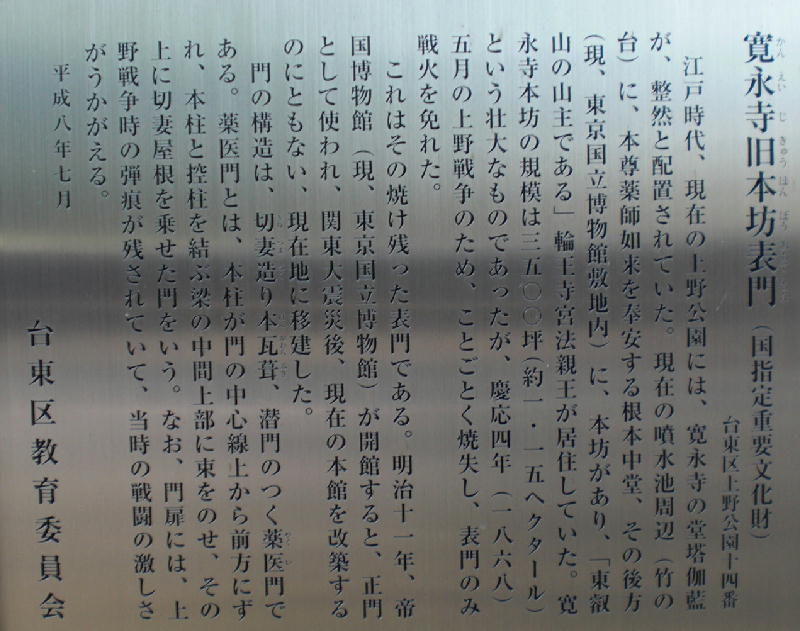 寛永寺旧本坊表門（国指定重要文化財）
台東区上野公園十四番
江戸時代、現在の上野公園には、寛永寺の堂塔伽藍
が、整然と配置されていた。現在の噴水池周辺（竹の
台）に、本尊薬師如来を奉安する根本中堂、その後方
（現、東京国立博物館敷地内）に、本坊があり、「東叡
山の山主である」輪王寺宮法親王が居住していた。寛
永寺本坊の規模は三五〇〇坪（約一・一五ヘクタール）
という壮大なものであったが、慶応四年（一八六八）
五月の上野戦争のため、ことごとく焼失し、表門のみ
戦火を免れた。
これはその焼け残った表門である。明治十一年、帝
国博物館（現、東京国立博物館）が開館すると、正門
として使われ、関東大震災後、現在の本館を改築する
のにともない、現在地に移建した。
門の構造は、切妻造り本瓦葺、潜門のつく薬医門で
ある。薬医門とは、本柱が門の中心線上から前方にず
れ、本柱と控柱を結ぶ梁の中間上部に束をのせ、その
上に切妻屋根を乗せた門をいう。なお、門扉には、上
野戦争時の弾痕が残されていて、当時の戦闘の激しさ
がうかがえる。
平成八年七月
台東区教育委員会